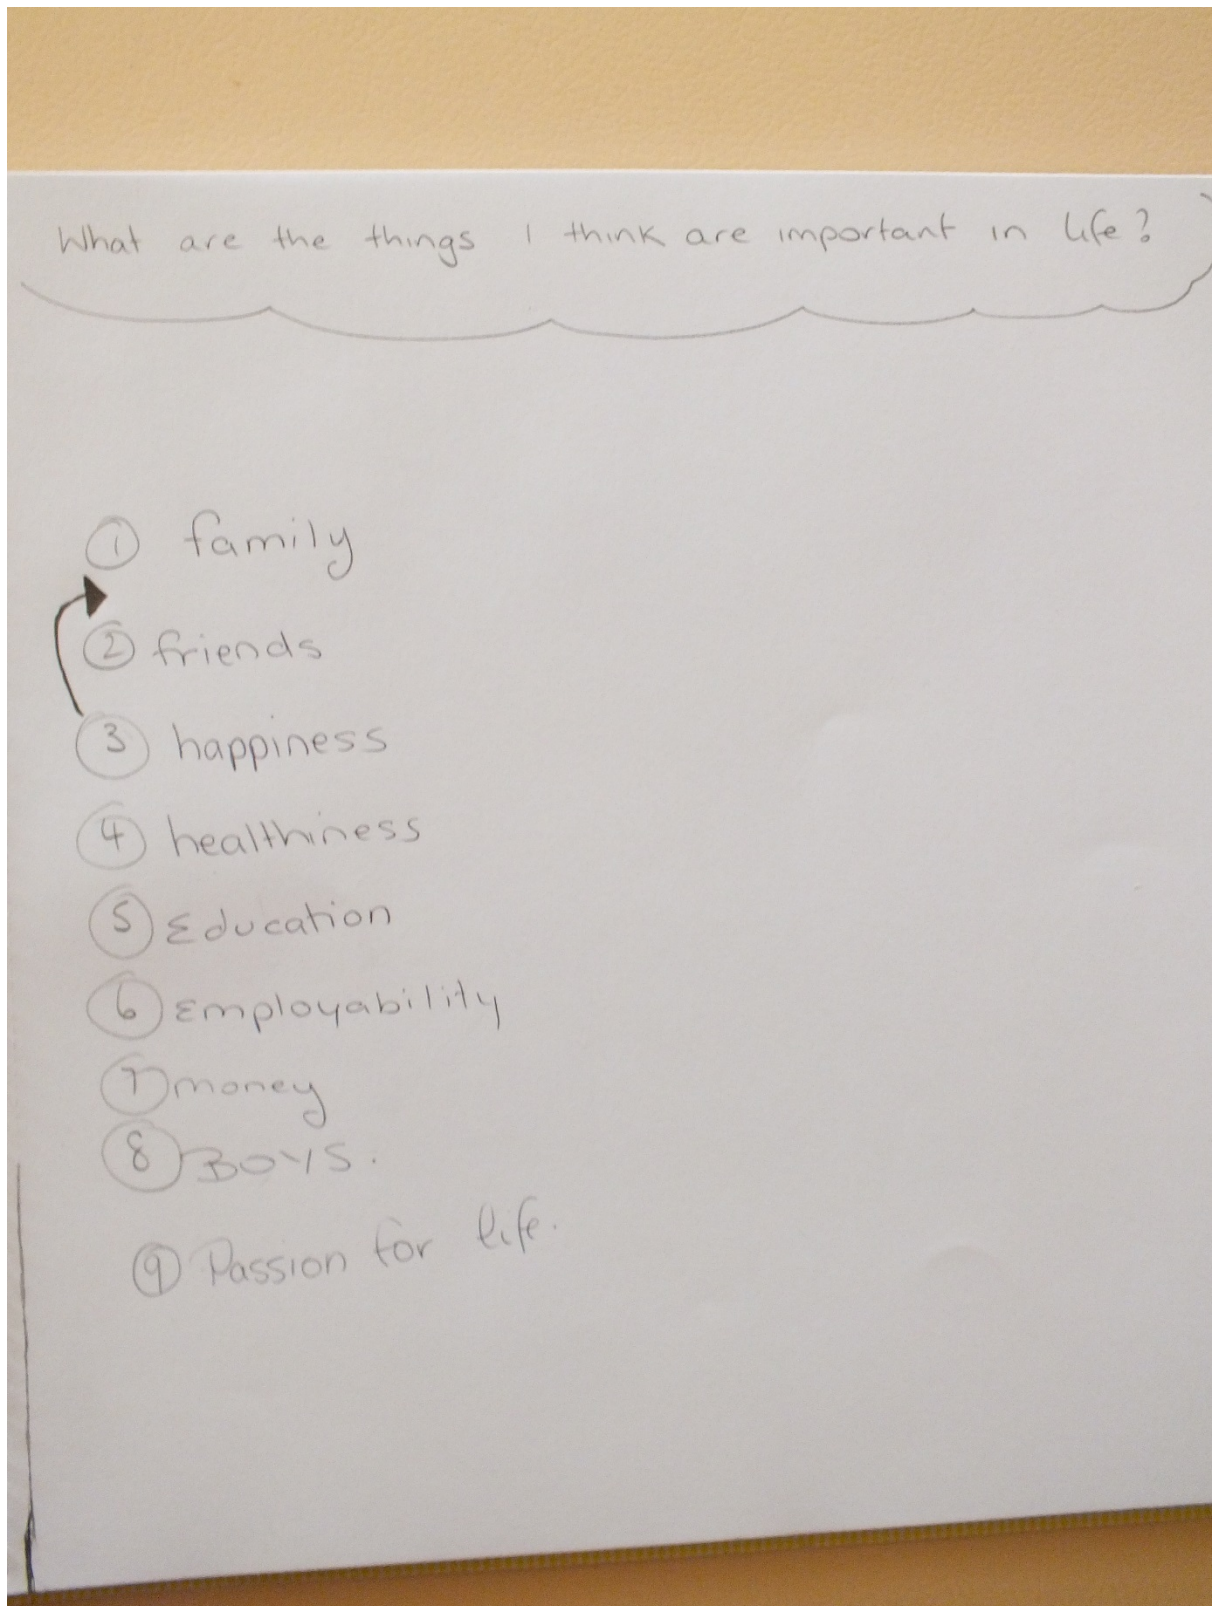 What are the things I think are important in life?
① family
② friends
③ happiness
④ healthiness
⑤ Education
⑥ Employability
⑦ money
⑧ BOYS.
⑨ Passion for life.